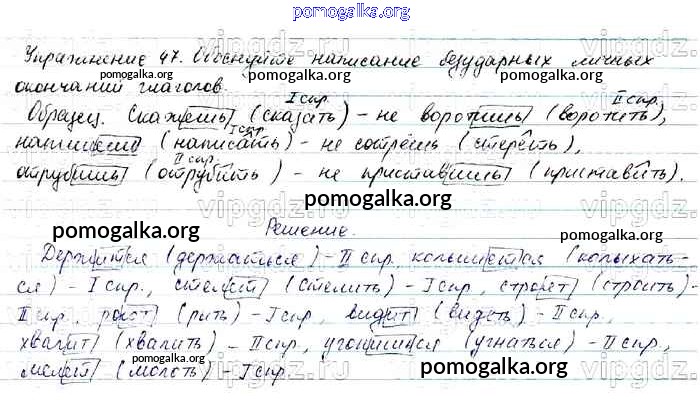 pomogalka.org
Упражнение 47. Обоснуйте написание безударных личных
pomogalka.org pomogalka.org
окончаний глаголов.
I спр. II спр.
Образец. Скажешь (сказать) – не воротишь (воротить),
I спр.
напишешь (написать) – не сотрёшь (стереть),
II спр.
отрубишь (отрубить) – не приставишь (приставить).
pomogalka.org
Решение.
pomogalka.org pomogalka.org
Держится (держаться) – II спр. колышется (колыхать-
ся) – I спр., стелет (стелить) – I спр., строет (строить) –
II спр., роет (рыть) – I спр., видит (видеть) – II спр.,
хвалит (хвалить) – II спр., угонишься (угнаться) – II спр.,
pomogalka.org pomogalka.org
мелет (молоть) – I спр.